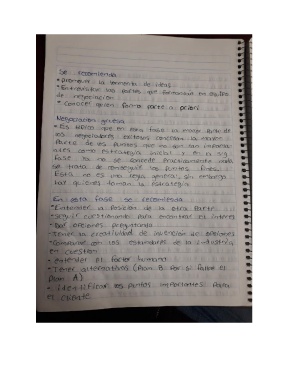 Se recomienda
• promover la tormenta de ideas
• Entrevistar las partes que formarán un equipo
de negociación
• Conocer quien forma parte a priori
Negociación gruesa
• Es típico que en esta fase la mayor parte de
los negociadores exitosos concedan la mayor
parte de los puntos que no son tan importan
como estrategia inicial y en la sig
fase ya no se concede prácticamente nada
se trata de conseguir los puntos finos.
Esta no es una regla general, sin embargo
hay quienes toman la estrategia
En esta fase se recomienda
• Entender la posición de la otra parte.
• Seguir cuestionando para encontrar el interés
• Dar opciones preguntando
• Tener la creatividad de invención de opciones
• Comparar con los estándares de la industria
en cuestión
• Entender el factor humano
• Tener alternativas (Plan B por si falla el
plan A)
• identificar los puntos importantes para
el cliente